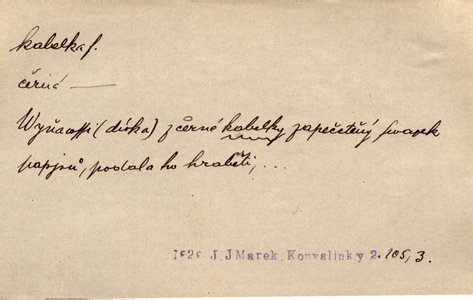 kabelka f.
černá —
Wyňawssi (dívka) z černé kabelky zapečetěný swazek
papjrů, podala ho hraběti, ...
1828 J. J Marek, Konvalinky 2. 105, 3.